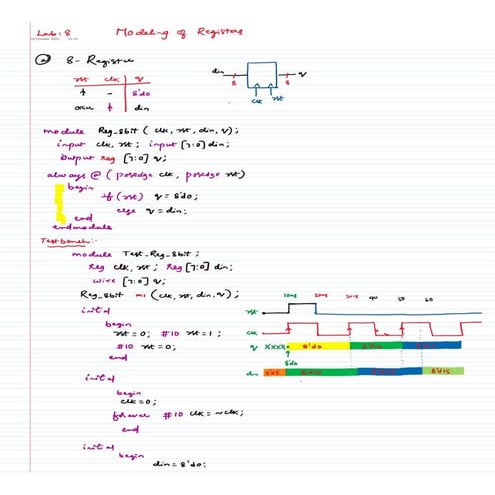 Lab: 8
Modeling of Registers
a 8- Register
rst clk q
↑ - 8'd0
other ↑ din
din 8 8 q
clk rst
module Reg_8bit ( clk, rst, din, q);
input clk, rst; input [7:0] din;
Output reg [7:0] q;
always @ ( posedge clk, posedge rst)
begin
if (rst) q = 8'd0;
else q = din;
end
endmodule
Testbench:-
module Test_Reg_8bit;
Reg clk, rst; Reg [7:0] din;
wire [7:0] q;
Reg_8bit m1 (clk, rst, din, q);
initial
begin
rst = 0; #10 rst = 1;
#10 rst = 0;
end
10ns 20ns 30ns 40 50 60
rst
clk
q XXXX 8'd0
8'd0
din 8'd5 8'd15
initial
begin
clk = 0;
forever #10 clk = ~clk;
end
initial
begin
din = 8'd0;